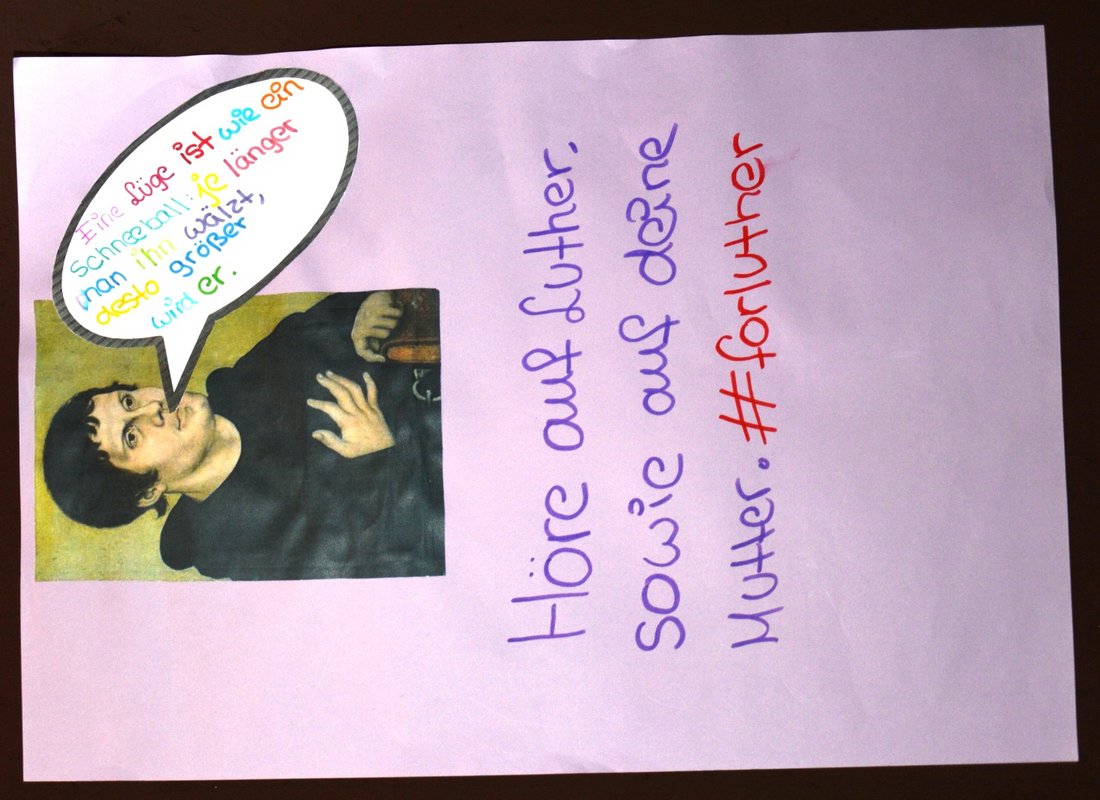 Eine Lüge ist wie ein
Schneeball: je länger
man ihn wälzt,
desto größer
wird er.
Höre auf Luther,
sowie auf deine
Mutter. #forluther